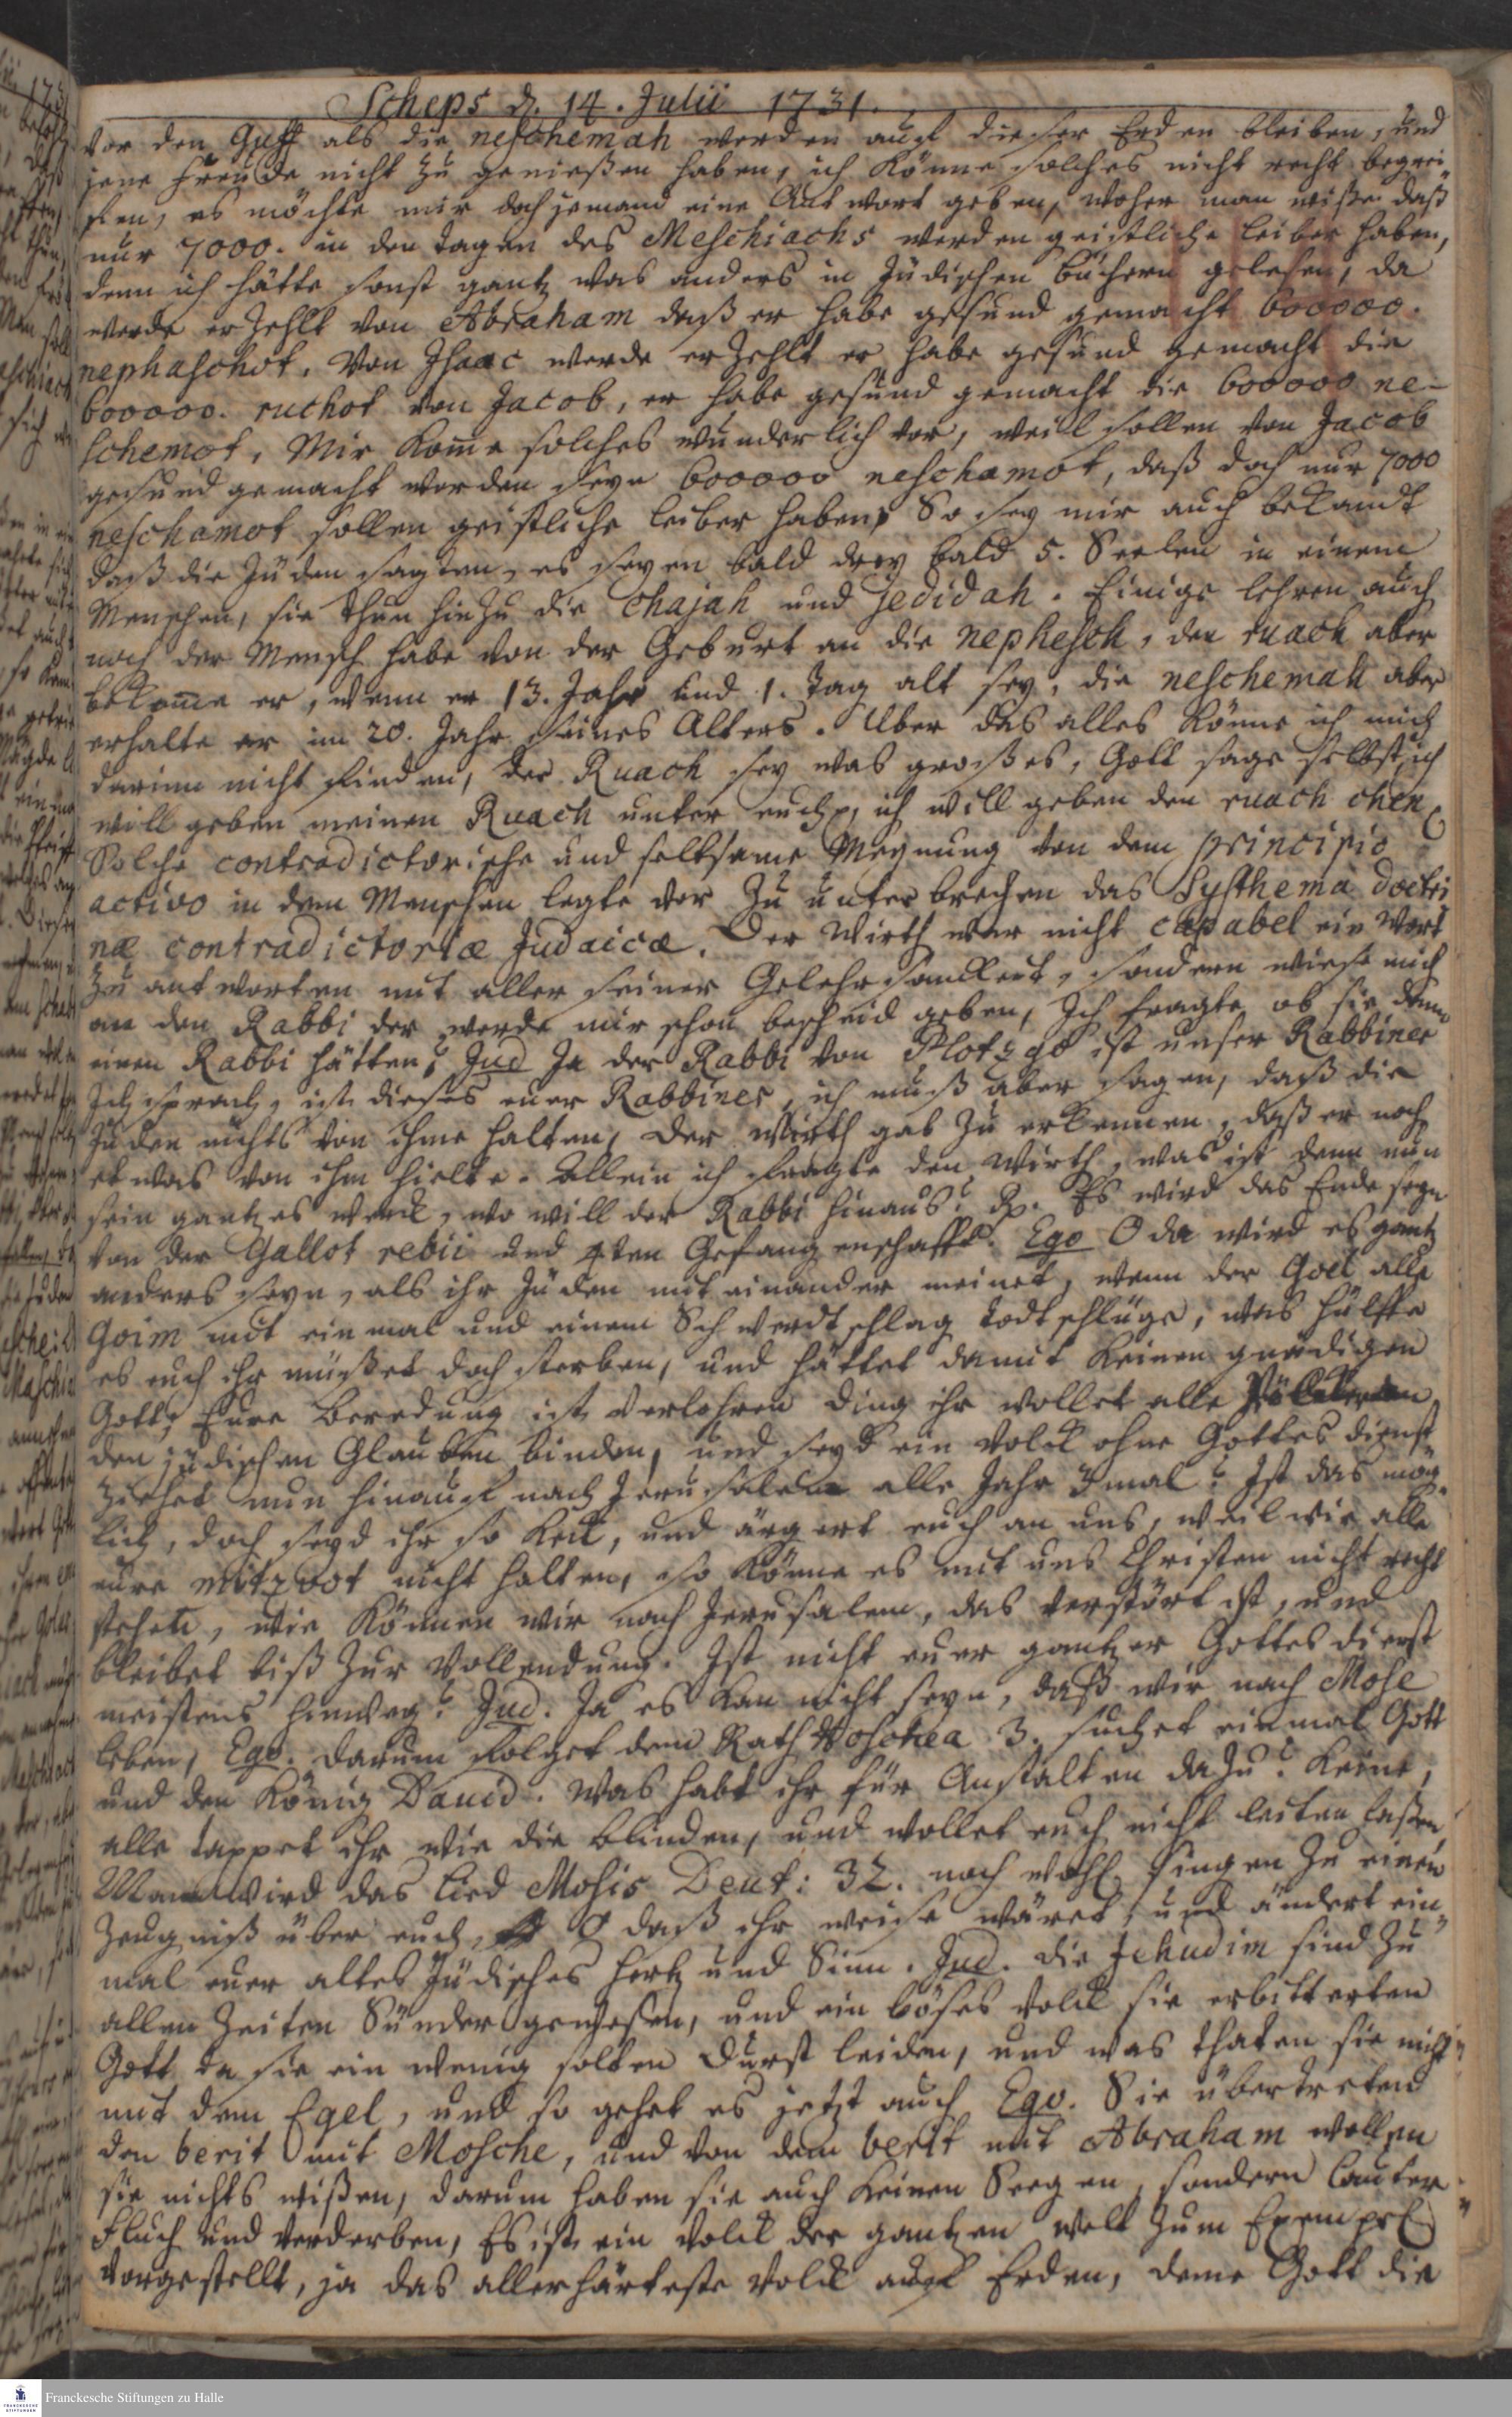 Scheps d. 14. Julii 1731.
vor den Guff als die neschemah werden auf dieser Erden bleiben, und
jene Freude nicht zu genießen haben, ich könne solches nicht recht begrei-
fen, es möchte mir doch jemand eine Antwort geben, woher man wiße daß
nur 7000. in den tagen des Meschiachs werden geistliche leiber haben,
denn ich hätte sonst gantz was anders in Jüdischen büchern gelesen, da
werde erzehlt von Abraham daß er habe gesund gemacht 600000.
nephaschot, von Isaac werde erzehlt er habe gesund gemacht die
600000. ruchot von Jacob, er habe gesund gemacht die 600000 ne-
schemot, Mir kome solches wunderlich vor, weil sollen von Jacob
gesund gemacht worden seyn 600000 neschamot, daß doch nur 7000
neschamot sollen geistliche leiber haben, So sey mir auch bekandt
daß die Jüden sagten, es seyen bald drey bald 5. Seelen in einem
Menschen, sie thun hinzu die chajah und jedidah. Einige lehren auch
noch der Mensch habe von der Geburt an die nephesch, den ruach aber
bekome er, wenn er 13. Jahr und 1. tag alt sey, die neschemah aber
erhalte er im 20. Jahr seines Alters. Uber das alles könne ich mich
darinn nicht finden, der Ruach sey was großes, Gott sage selbst, ich
will geben meinen Ruach unter euch, ich will geben den ruach chen
Solche contradictorische und seltsame Meynung von dem principio
activo in dem Menschen legte vor zu unterbrechen das Systhema doctri
næ contradictoriæ Judaicæ. Der Wirth war nicht capabel ein Wort
zu antworten mit aller seiner Gelehrsamkeit, sondern wiese mich
an den Rabbi der werde mir schon bescheid geben, Ich fragte ob sie denn
einen Rabbi hätten? Jud Ja der Rabbi von Plotzgo ist unser Rabbiner
Ich sprach, ist dieses euer Rabbiner, ich muß aber sagen, daß die
Jüden nichts von ihme halten, der Wirth gab zu erkennen, daß er noch
etwas von ihm hielte. Allein ich fragte den Wirth, was ist denn nun
sein gantzes werck, wo will der Rabbi hinaus? Rx. Es wird das Ende seyn
von der Gallot rebii und 4ten Gefangenschafft. Ego O da wird es gantz
anders seyn, als ihr Jüden mit einander meinet, wenn der Goel alle
Goim mit einmal und einem Schwerdtschlag todtschlüge, was hülffe
es euch ihr müßtet doch sterben, und hättet damit keinen gnädigen
Gott, Eure Beredung ist verlohren ding ihr wollet alle
den jüdischen Glauben binden, und seyd ein Volck ohne Gottesdienst
ziehet nun hinauf nach Jerusalem alle Jahr 3mal? Ist das mög-
lich, doch seyd ihr so keck, und ärgert euch an uns, weil wir alle
eure mitzvot nicht halten, so könne es mit uns Christen nicht recht
stehen, wie können wir nach Jerusalem, das verstört ist, und
bleibet biß zur Vollendung. Ist nicht euer gantzer Gottesdienst
meistens hinweg? Jud. Ja es kan nicht seyn, daß wir nach Mose
leben, Ego. Darum folget dem Rath Hoschea 3. suchet einmal Gott
und den König David. Was habt ihr für Anstalten dazu? keine,
alle tappet ihr wie die blinden, und wollet euch nicht leiten laßen,
Man wird das Lied Mosis Deut: 32. noch wohl singen zu einem
Zeugniß über euch, O daß ihr weise wäret, und ändert ein-
mal euer altes Jüdisches Hertz und Sinn. Jud. Die Jehudim sind zu
allen Zeiten Sünder gewesen, und ein böses Volck sie erbitterten
Gott da sie ein wenig solten Durst leiden, und was thaten sie nicht
mit dem Egel, und so gehet es jetzt auch Ego. Sie übertreten
den berit mit Mosche, und von dem berit mit Abraham wollen
sie nichts wißen, darum haben sie auch keinen Seegen, sondern lauter
Fluch und Verderben, Es ist ein Volck der gantzen welt zum Exempel
vorgestellt, ja das allerhärteste Volck auf Erden, deme Gott die
Franckesche Stiftungen zu Halle